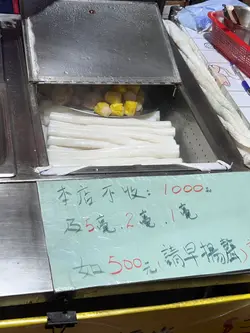 本店不收：1000元
及5毫.2毫.1毫
如500元(請早揚聲)